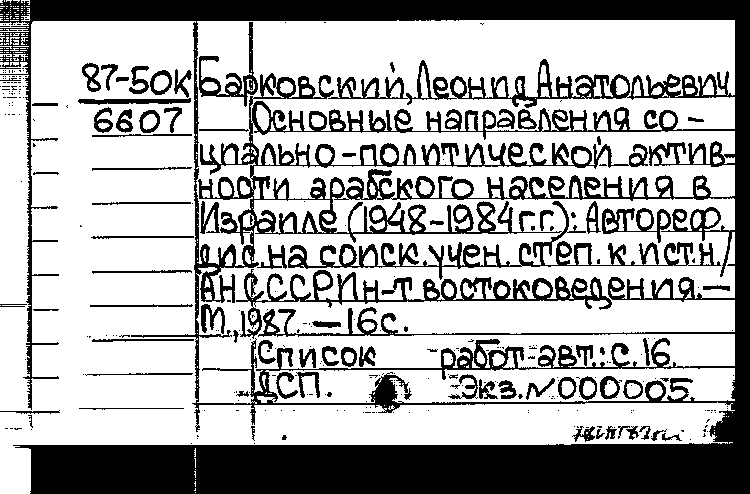 87-50К Барковский, Леонид Анатольевич
6607 Основные направления со-
циально-политической актив-
ности арабского населения в
Израиле (1948-1984 г.г.): Автореф.
дис. на соиск. учен. степ. к. ист. н. /
АН СССР, Ин-т востоковедения. —
М., 1987. — 16с.
Список работ авт.: с. 16.
ДСП. Экз. №000005.